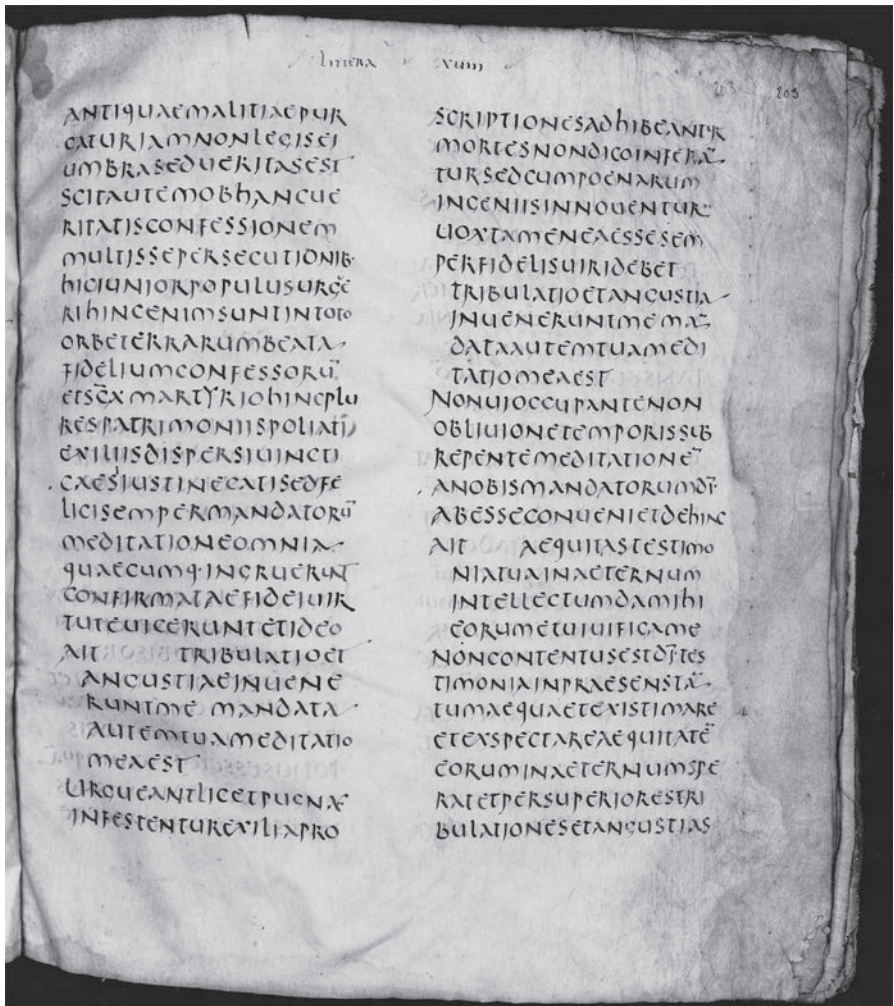 littera xuiiii
203 203
ANTIQUAEMALITIAEPUR
GATURIAMNONLEGISEI
UMBRASEDUERITASEST
SCITAUTEMOBHANCUE
RITATISCONFESSIONEM
MULTISSEPERSECUTIONIB·
HICIUNIORPOPULUSURGE
RIHINCENIMSUNTINTOTO
ORBETERRARUMBEATA
FIDELIUMCONFESSORŪ
ETSC̄AMARTYRIOHINCPLU
RESPATRIMONIISPOLIATI
EXILIISDISPERSIUINCTI
CAESIUSTINECATISEDFE
LICISEMPERMANDATORŪ
MEDITATIONEOMNIA
QUAECUMQ·INGRUERUNT
CONFIRMATAEFIDEIUIR
TUTEUICERUNTETIDEO
AIT TRIBULATIOET
ANGUSTIAEINUENE
RUNTME MANDATA
AUTEMTUAMEDITATIO
MEAEST
URGUEANTLICETPUGNAE
INFESTENTUREXILIAPRO
SCRIPTIONESADHIBEANTUR
MORTESNONDICOINFERA̅
TURSEDCUMPOENARUM
INGENIISINNOUENTUR
UOXTAMENEAESSESEM
PERFIDELISUIRIDEBET
TRIBULATIOETANGUSTIA
INUENERUNTMEMA̅
DATAAUTEMTUAMEDI
TATIOMEAEST
NONUIOCCUPANTENON
OBLIUIONETEMPORISSUB
REPENTEMEDITATIONE̅
ANOBISMANDATORUMD̅I·
ABESSECONUENIETDEHINC
AIT AEQUITASTESTIMO
NIATUAINAETERNUM
INTELLECTUMDAMIHI
EORUMETUIUIFICAME
NONCONTENTUSESTD̅ITES
TIMONIAINPRAESENSTA̅
TUMAEQUAETEXISTIMARE
ETEXSPECTAREAEQUITATE̅
EORUMINAETERNUMSPE
RATETPERSUPERIORESTRI
BULATIONESETANGUSTIAS